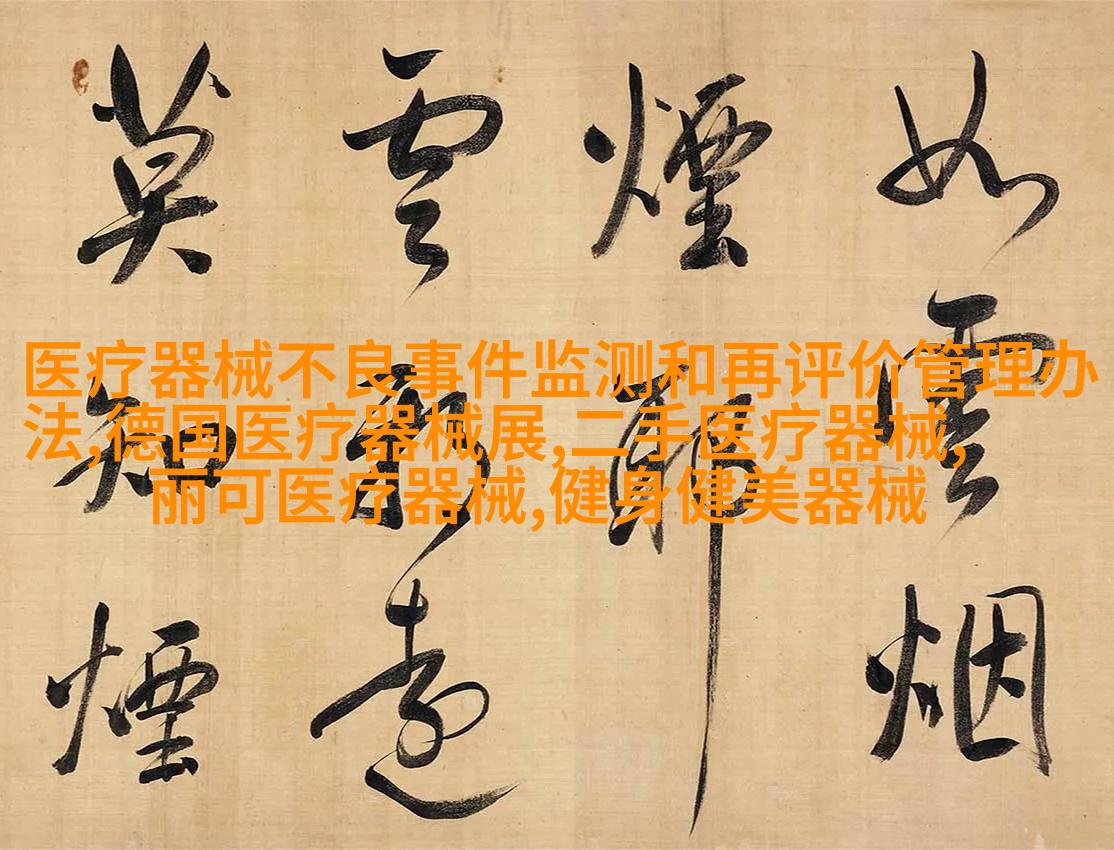 医疗器械不良事件监测和再评价管理办
法,德国医疗器械展,二手医疗器械,
丽可医疗器械,健身健美器械
如雲烟
煙
雲遠
莫知煙